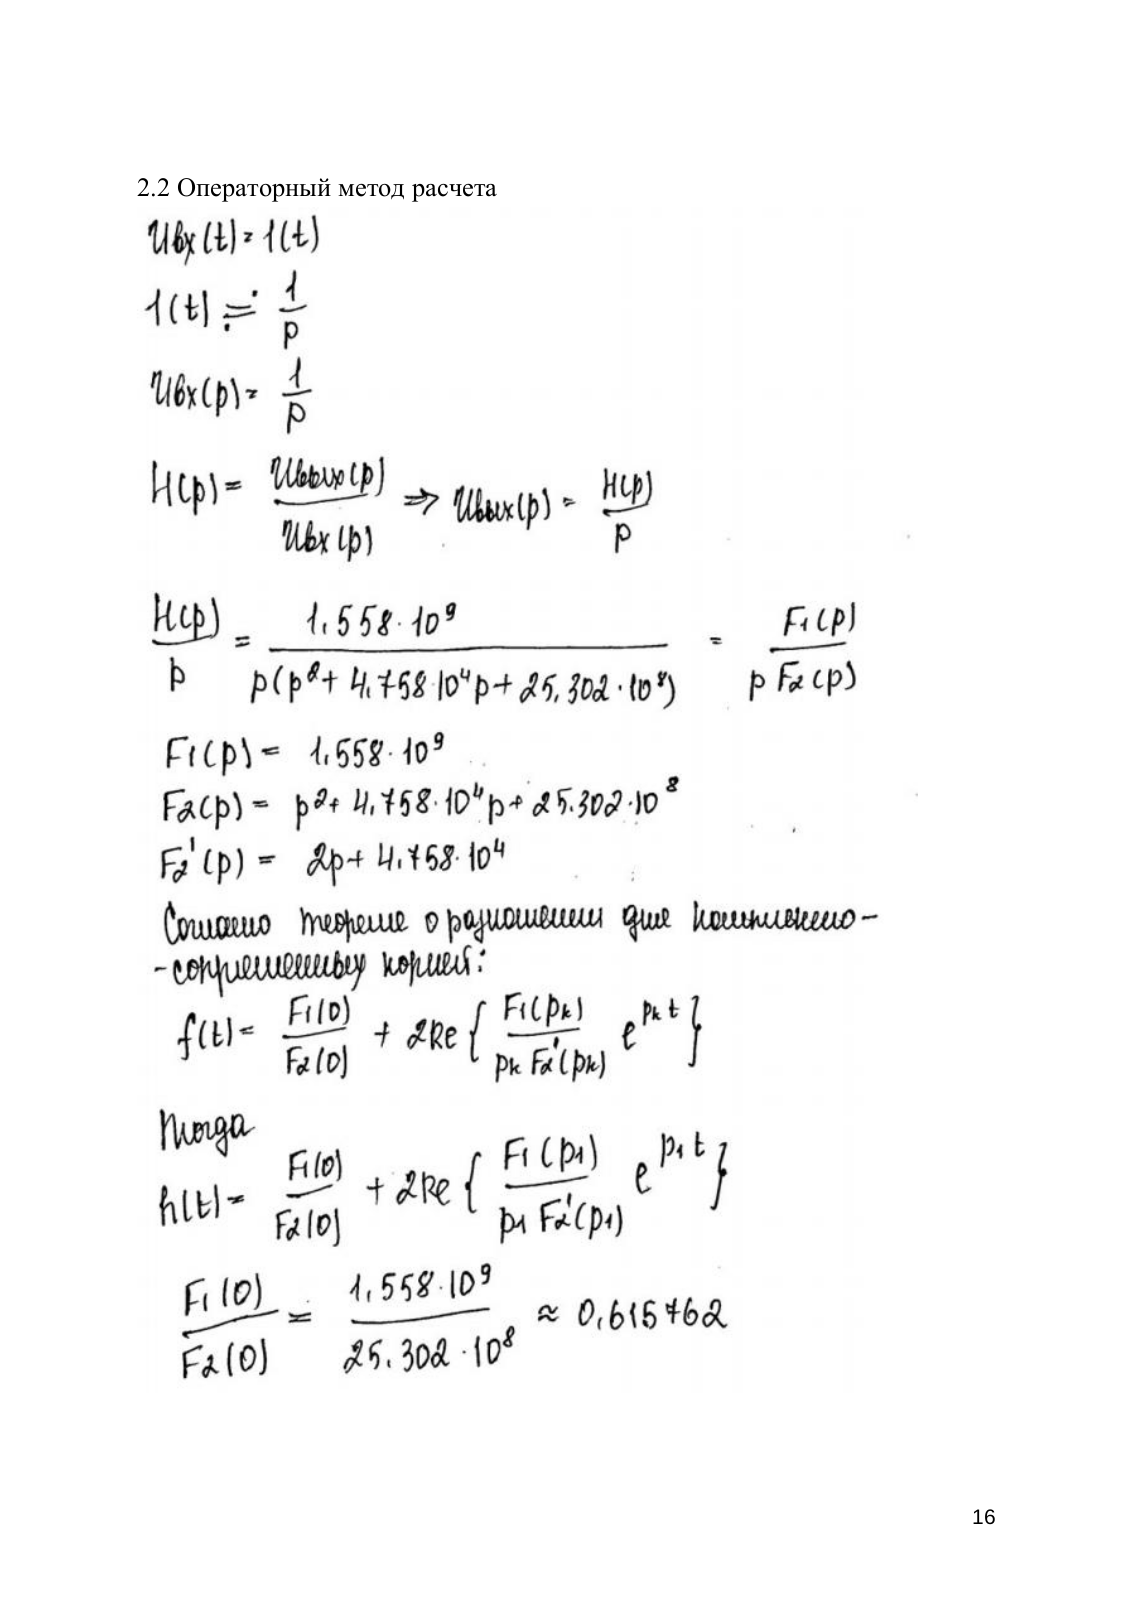 2.2 Операторный метод расчета
Uвх(t) = 1(t)
1(t) ≓ 1/p
Uвх(p) = 1/p
H(p) = Uвых(p)/Uвх(p) ⇒ Uвых(p) = H(p)/p
H(p)/p = 1,558·10⁹/p(p²+4,758·10⁴p+25,302·10⁸) = F1(p)/pF2(p)
F1(p) = 1,558·10⁹
F2(p) = p²+4,758·10⁴p+25.302·10⁸
F2'(p) = 2p+4,758·10⁴
Согласно теореме о разложении для комплексно-
-сопряженных корней:
f(t) = F1(0)/F2(0) + 2Re{F1(pk)/pkF2'(pk) e^(pk t)}
Тогда
h(t) = F1(0)/F2(0) + 2Re{F1(p1)/p1F2'(p1) e^(p1 t)}
F1(0)/F2(0) = 1,558·10⁹/25,302·10⁸ ≈ 0,615762
16